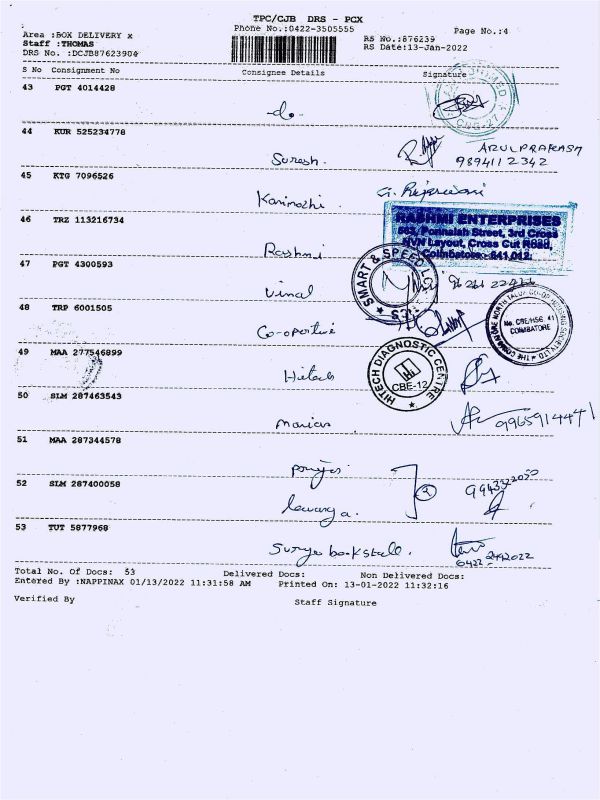 TPC/CJB DRS - PCX
Phone No.:0422-3505555
Page No.:4
Area :BOX DELIVERY x
RS No.:876239
Staff :THOMAS
RS Date:13-Jan-2022
DRS No. :DCJB87623904
S No Consignment No Consignee Details Signature
43 PGT 4014428
do
CBE-27
44 KUR 525234778
Suresh
ARULPRAKASM
9894112342
45 KTG 7096526
Kanimozhi
46 TRZ 113216734
RASHMI ENTERPRISES
Ponnaiah Street, 3rd Cross
NVN Layout, Cross Cut Road,
Coimbatore - 641 012.
Rashmi
47 PGT 4300593
SMART & SPEED
Vimal
48 TRP 6001505
No. CBE/HSG. 41
COIMBATORE
Co-opertive
49 MAA 277546899
HITECH DIAGNOSTIC CENTRE
CBE-12
Hitech
50 SLM 287463543
9965914441
51 MAA 287344578
52 SLM 287400058
2
Lavanya
53 TUT 5877968
Surya bookstall
0422
Total No. Of Docs: 53 Delivered Docs: Non Delivered Docs:
Entered By :NAPPINAX 01/13/2022 11:31:58 AM Printed On: 13-01-2022 11:32:16
Verified By Staff Signature